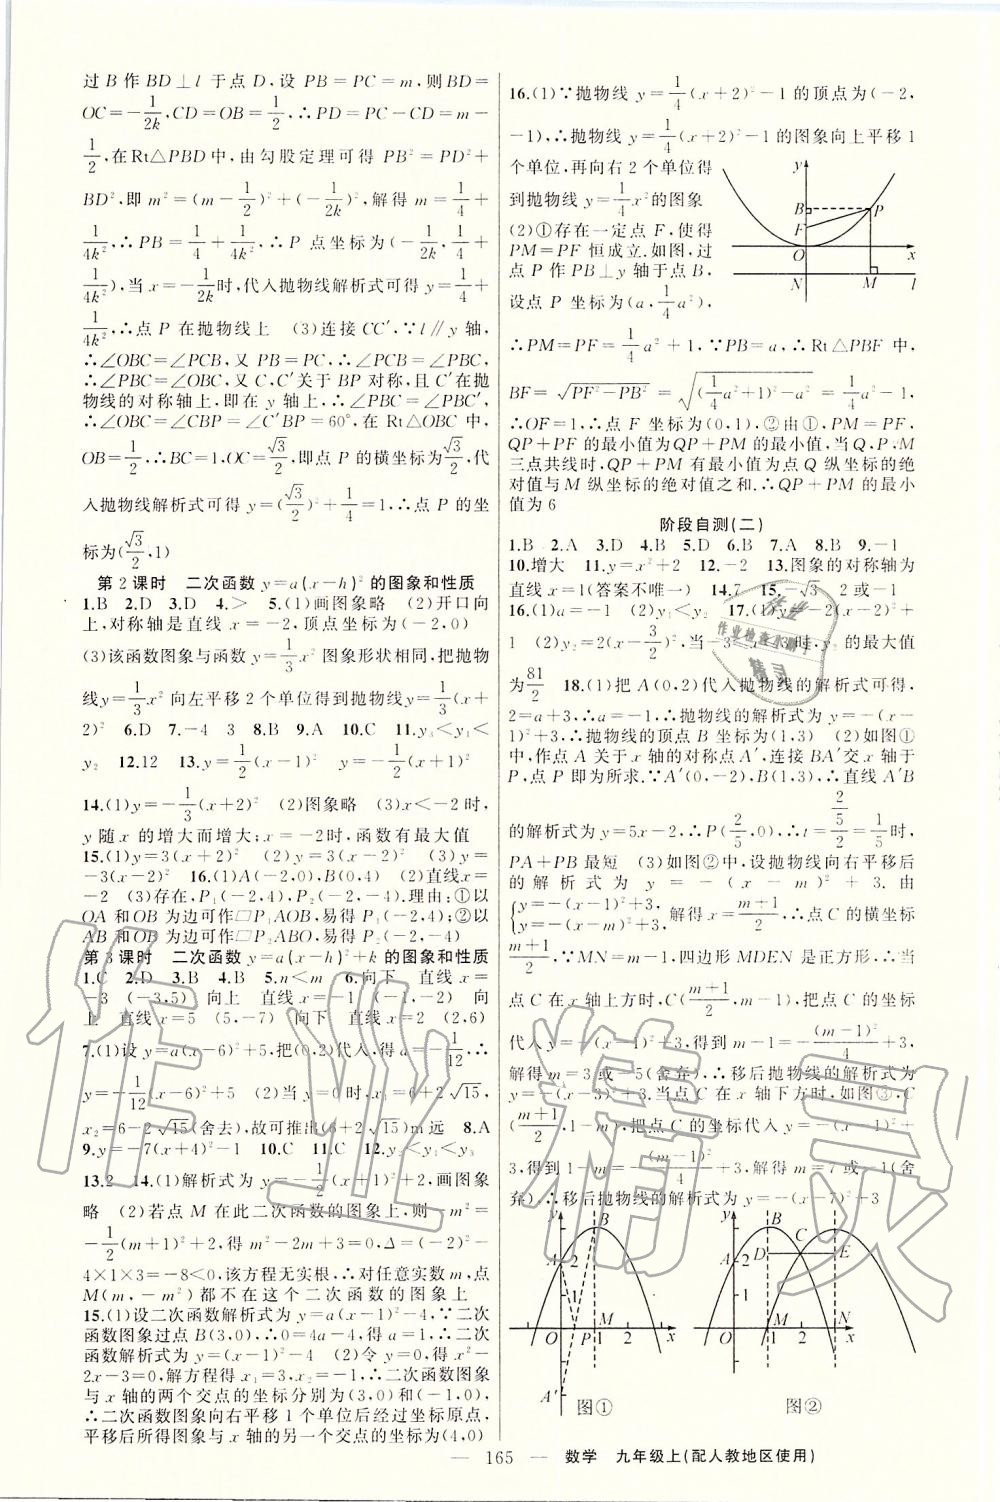 过 B 作 BD⊥l 于点 D,设 PB=PC=m,则 BD=
OC=-1/(2k),CD=OB=1/2,∴PD=PC-CD=m-
1/2,在 Rt△PBD 中,由勾股定理可得 PB²=PD²+
BD²,即 m²=(m-1/2)²+(-1/(2k))²,解得 m=1/4+
1/(4k²),∴PB=1/4+1/(4k²),∴P 点坐标为(-1/(2k),1/4+
1/(4k²)),当 x=-1/(2k)时,代入抛物线解析式可得 y=1/4+
1/(4k²),∴点 P 在抛物线上 (3)连接 CC′,∵l∥y 轴,
∴∠OBC=∠PCB,又 PB=PC,∴∠PCB=∠PBC,
∴∠PBC=∠OBC,又 C,C′关于 BP 对称,且 C′在抛
物线的对称轴上,即在 y 轴上,∴∠PBC=∠PBC′,
∴∠OBC=∠CBP=∠C′BP=60°,在 Rt△OBC 中,
OB=1/2,∴BC=1,OC=√3/2,即点 P 的横坐标为√3/2,代
入抛物线解析式可得 y=(√3/2)²+1/4=1,∴点 P 的坐
标为(√3/2,1)
第 2 课时 二次函数 y=a(x-h)²的图象和性质
1.B 2.D 3.D 4.> 5.(1)画图象略 (2)开口向
上,对称轴是直线 x=-2,顶点坐标为(-2,0)
(3)该函数图象与函数 y=1/3x²图象形状相同,把抛物
线y=1/3x²向左平移 2 个单位得到抛物线y=1/3(x+
2)² 6.D 7.-4 3 8.B 9.A 10.C 11.y₃<y₁<
y₂ 12.12 13.y=1/2(x-1)² y=-1/2(x-1)²
14.(1)y=-1/3(x+2)² (2)图象略 (3)x<-2 时,
y 随 x 的增大而增大;x=-2时,函数有最大值
15.(1)y=3(x+2)² (2)y=3(x-2)² (3)y=
-3(x-2)² 16.(1)A(-2,0),B(0,4) (2)直线x=
-2 (3)存在,P₁(-2,4),P₂(-2,-4).理由:①以
OA 和OB 为边可作▱P₁AOB,易得 P₁(-2,4);②以
AB 和OB 为边可作▱P₂ABO,易得 P₂(-2,-4)
第 3 课时 二次函数 y=a(x-h)²+k 的图象和性质
1.C 2.D 3.B 4.B 5.n<m 6.向下 直线 x=
-3 (-3,5) 向上 直线x=-1 (-1,-2) 向
上 直线x=5 (5,-7) 向下 直线x=2 (2,6)
7.(1)设 y=a(x-6)²+5,把(0,2)代入,得 a=-1/12,∴
y=-1/12(x-6)²+5 (2)当 y=0时,x₁=6+2√15,
x₂=6-2√15(舍去),故可推出(6+2√15)m远 8.A
9.y=-7(x+4)²-1 10.C 11.C 12.y₂<y₁<y₃
13.2 14.(1)解析式为 y=-1/2(x+1)²+2,画图象
略 (2)若点 M 在此二次函数的图象上,则-m²=
-1/2(m+1)²+2,得 m²-2m+3=0,Δ=(-2)²-
4×1×3=-8<0,该方程无实根,∴对任意实数 m,点
M(m,-m²)都不在这个二次函数的图象上
15.(1)设二次函数解析式为 y=a(x-1)²-4,∵二次
函数图象过点 B(3,0),∴0=4a-4,得 a=1,∴二次
函数解析式为 y=(x-1)²-4 (2)令 y=0,得 x²-
2x-3=0,解方程得 x₁=3,x₂=-1,∴二次函数图象
与 x 轴的两个交点的坐标分别为(3,0)和(-1,0),
∴二次函数图象向右平移 1 个单位后经过坐标原点,
平移后所得图象与 x 轴的另一个交点的坐标为(4,0)
16.(1)∵抛物线 y=1/4(x+2)²-1 的顶点为(-2,
-1),∴抛物线 y=1/4(x+2)²-1 的图象向上平移 1
个单位,再向右 2 个单位得
到抛物线 y=1/4x²的图象
(2)①存在一定点 F,使得
PM=PF 恒成立.如图,过
点 P 作 PB⊥y 轴于点 B,
设点 P 坐标为(a,1/4a²),
y
B
P
F
O
x
N
M
l
∴PM=PF=1/4a²+1,∵PB=a,∴Rt△PBF 中,
BF=√(PF²-PB²)=√((1/4a²+1)²-a²)=1/4a²-1,
∴OF=1,∴点 F 坐标为(0,1),②由①,PM=PF,
QP+PF 的最小值为QP+PM 的最小值,当 Q,P,M
三点共线时,QP+PM 有最小值为点 Q 纵坐标的绝
对值与 M 纵坐标的绝对值之和.∴QP+PM 的最小
值为 6
阶段自测(二)
1.B 2.A 3.D 4.B 5.D 6.B 7.A 8.B 9.-1
10.增大 11.y=x²+2 12.-2 13.图象的对称轴为
直线 x=1(答案不唯一) 14.7 15.-√3 2或-1
16.(1)a=-1 (2)y₁<y₂ 17.(1)y₁=-2(x-2)²+
1 (2)y₂=2(x-3/2)²,当-3≤x≤3时,y₂的最大值
为81/2 18.(1)把 A(0,2)代入抛物线的解析式可得,
2=a+3,∴a=-1,∴抛物线的解析式为 y=-(x-
1)²+3,∴抛物线的顶点 B 坐标为(1,3) (2)如图①
中,作点 A 关于 x 轴的对称点 A′,连接 BA′交 x 轴于
P,点 P 即为所求.∵A′(0,-2),B(1,3),∴直线 A′B
的解析式为 y=5x-2,∴P(2/5,0),∴t=(2/5)/2=1/5时,
PA+PB 最短 (3)如图②中,设抛物线向右平移后
的解析式为 y=-(x-m)²+3.由
{y=-(x-1)²+3, y=-(x-m)²+3, 解得 x=(m+1)/2,∴点 C 的横坐标
(m+1)/2,∵MN=m-1,四边形 MDEN 是正方形,∴当
点 C 在 x 轴上方时,C((m+1)/2,m-1),把点 C 的坐标
代入 y=-(x-1)²+3,得到 m-1=-(m-1)²/4+3,
解得 m=3 或-5(舍弃),∴移后抛物线的解析式为
y=-(x-3)²+3.当点 C 在 x 轴下方时,如图③,C
((m+1)/2,1-m),把点 C 的坐标代入 y=-(x-1)²+
3,得到 1-m=-(m-1)²/4+3,解得 m=7 或-1(舍
弃),∴移后抛物线的解析式为 y=-(x-7)²+3
y
B
A
2
1
O
P
1
2
x
M
A′
图①
y
B
D
C
E
A
2
1
O
1
2
M
N
x
图②
— 165 — 数学 九年级上(配人教地区使用)
作业精灵
作业
作业检查小助手
精灵